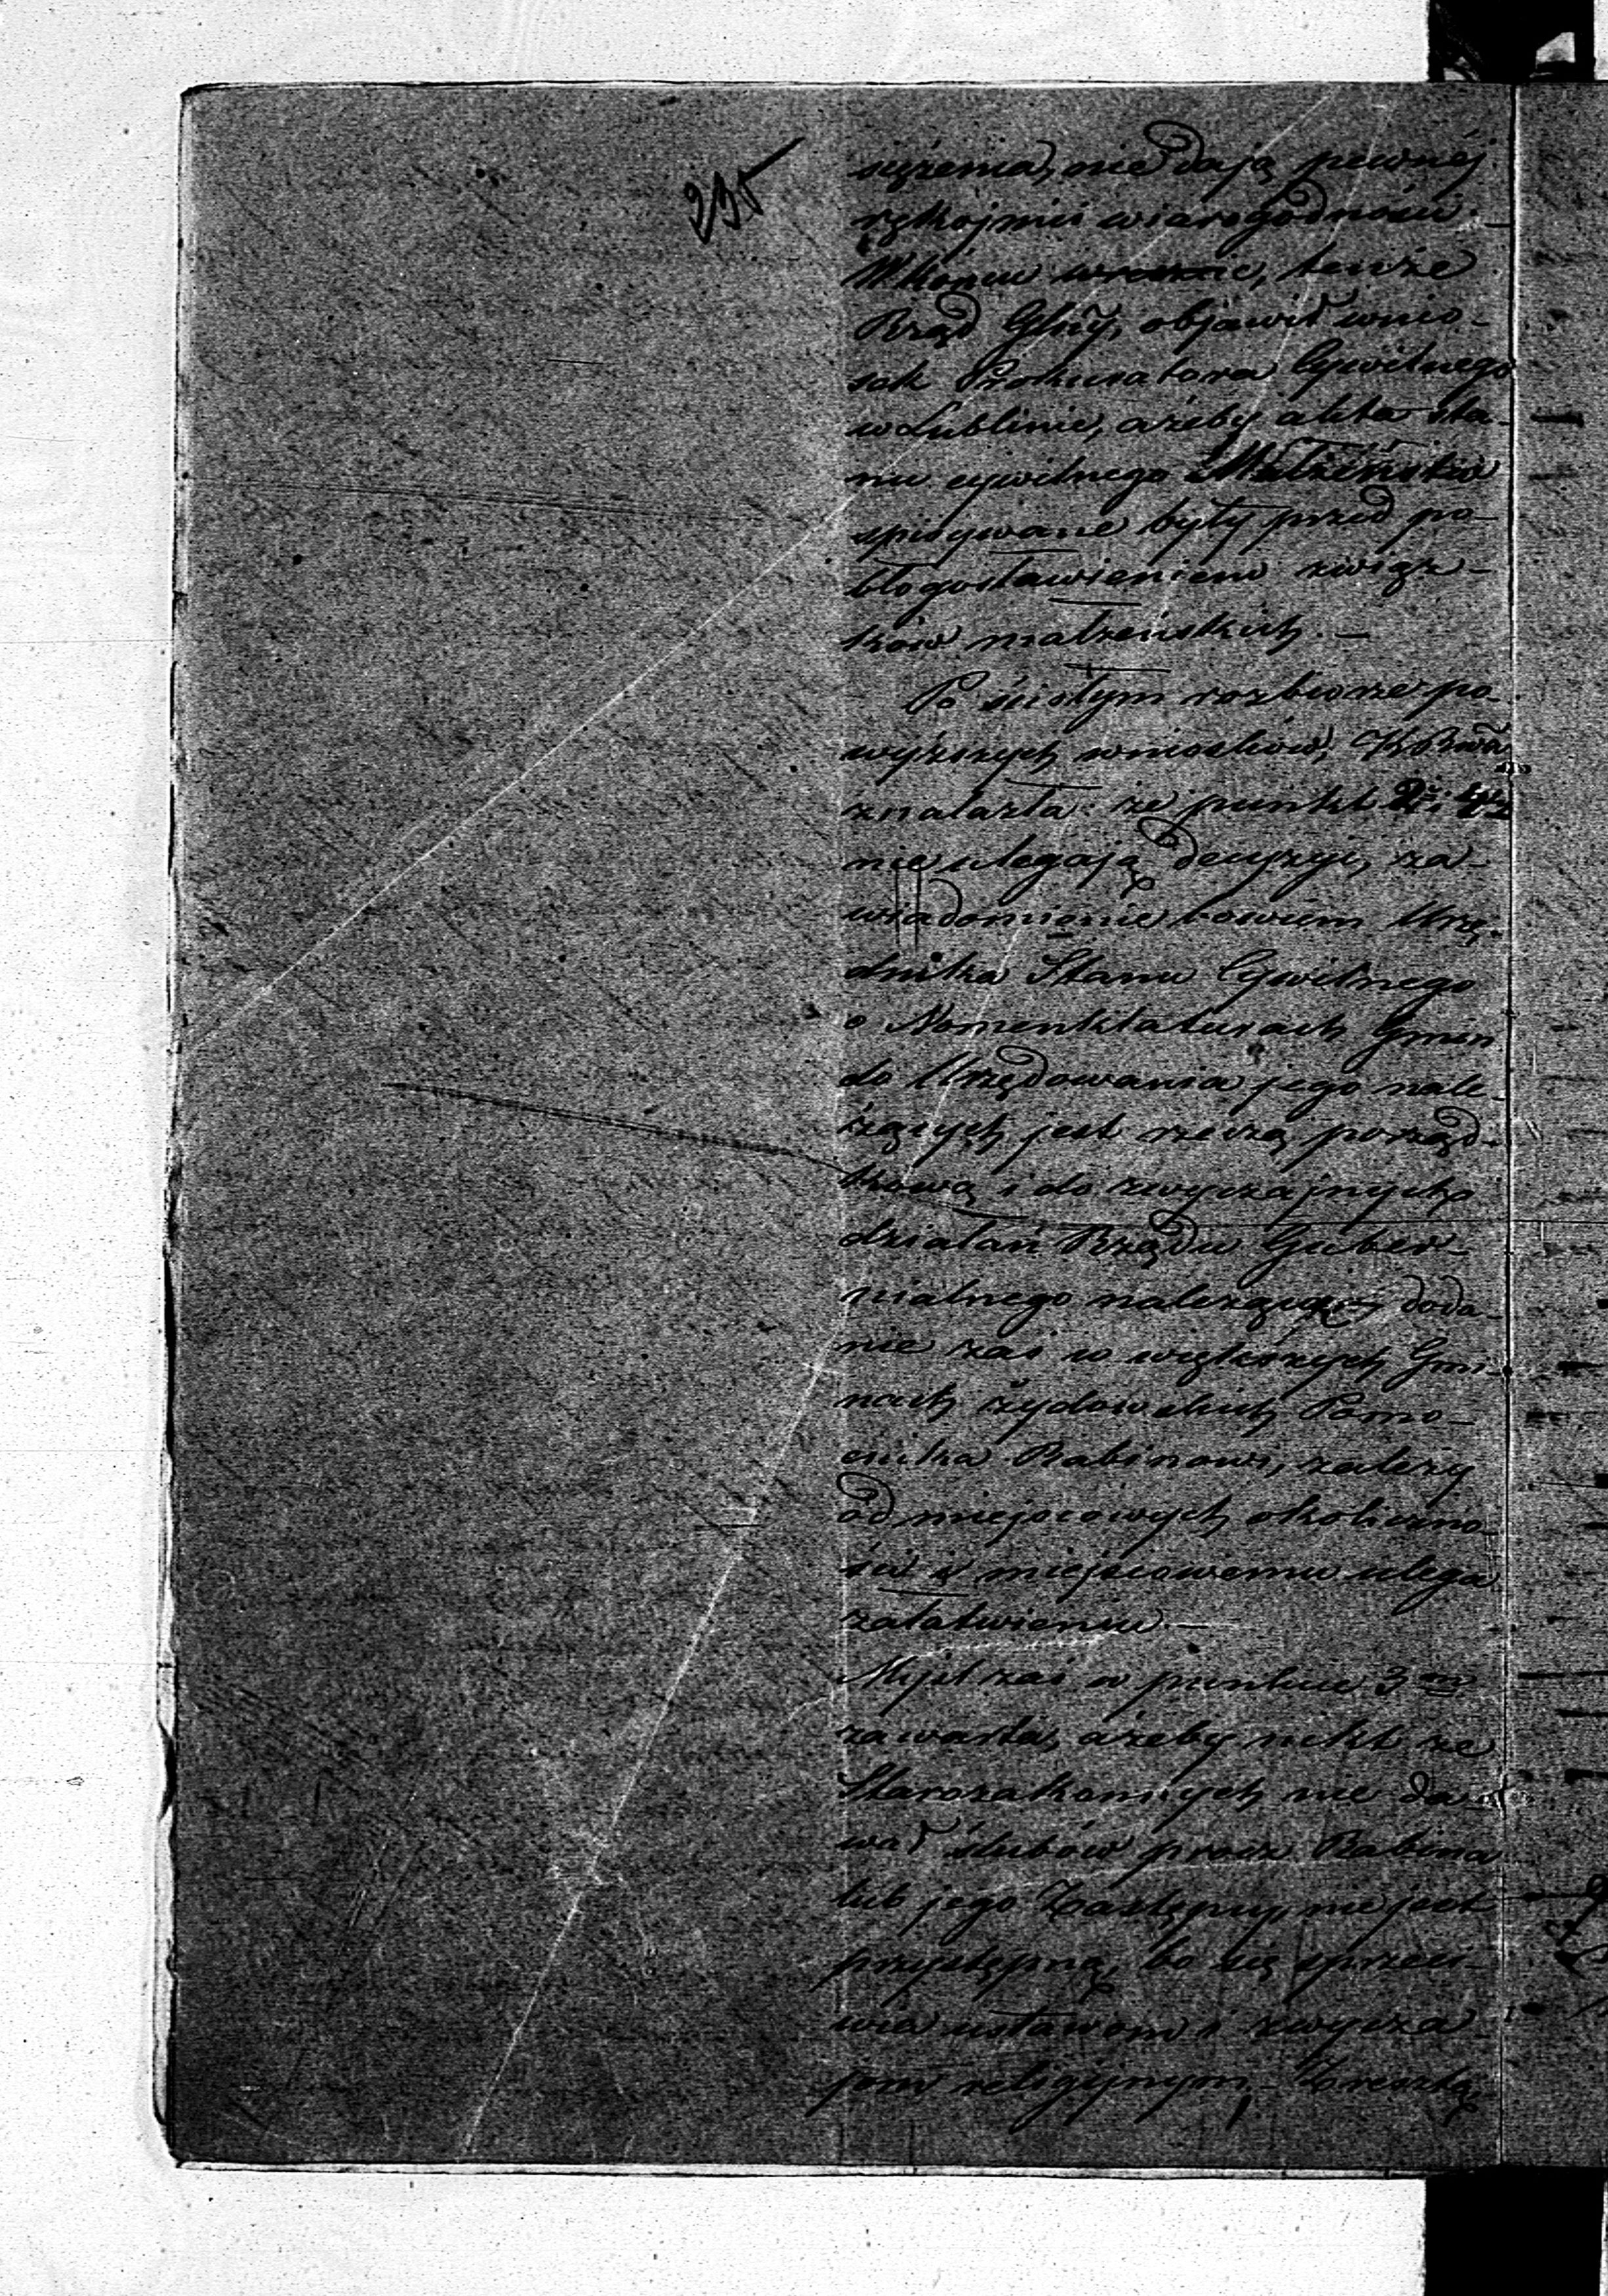 235
siężenia, nie dają pewnéj
rękojmii wiarogodności. —
W końcu wreszcie, tenże
Rząd Glny, objawił wnio-
sek Prokuratora Cywilnego
w Lublinie, ażeby akta sta-
nu cywilnego Małżeństw
spisywane były przed po-
błogosławieniem związ-
ków małżeńskich. —
Po ścisłym rozbiorze po-
wyższych wniosków,
znalazła: że punkt
nie ulegają decyzyi, za-
wiadomienie bowiem Urzę-
dnika Stanu Cywilnego
o Nomenklaturach Gmin
do Urzędowania jego nale-
żących jest rzeczą porząd-
kową i do zwyczajnych
działań Rządu Guber-
nialnego należącą, doda-
nie zaś w większych Gmi-
nach żydowskich Pomo-
cnika Rabinowi, zależy
od miejscowych okoliczno-
ści i miejscowemu ulega
załatwieniu. —
Myśl zaś w punkcie 3m
zawarta, ażeby nikt ze
Starozakonnych nie da-
wał ślubów prócz Rabina
lub jego Zastępcy, nie jest
przystępną, bo się sprzeci-
wia ustawom i zwycza-
jom religijnym, — Zresztą,